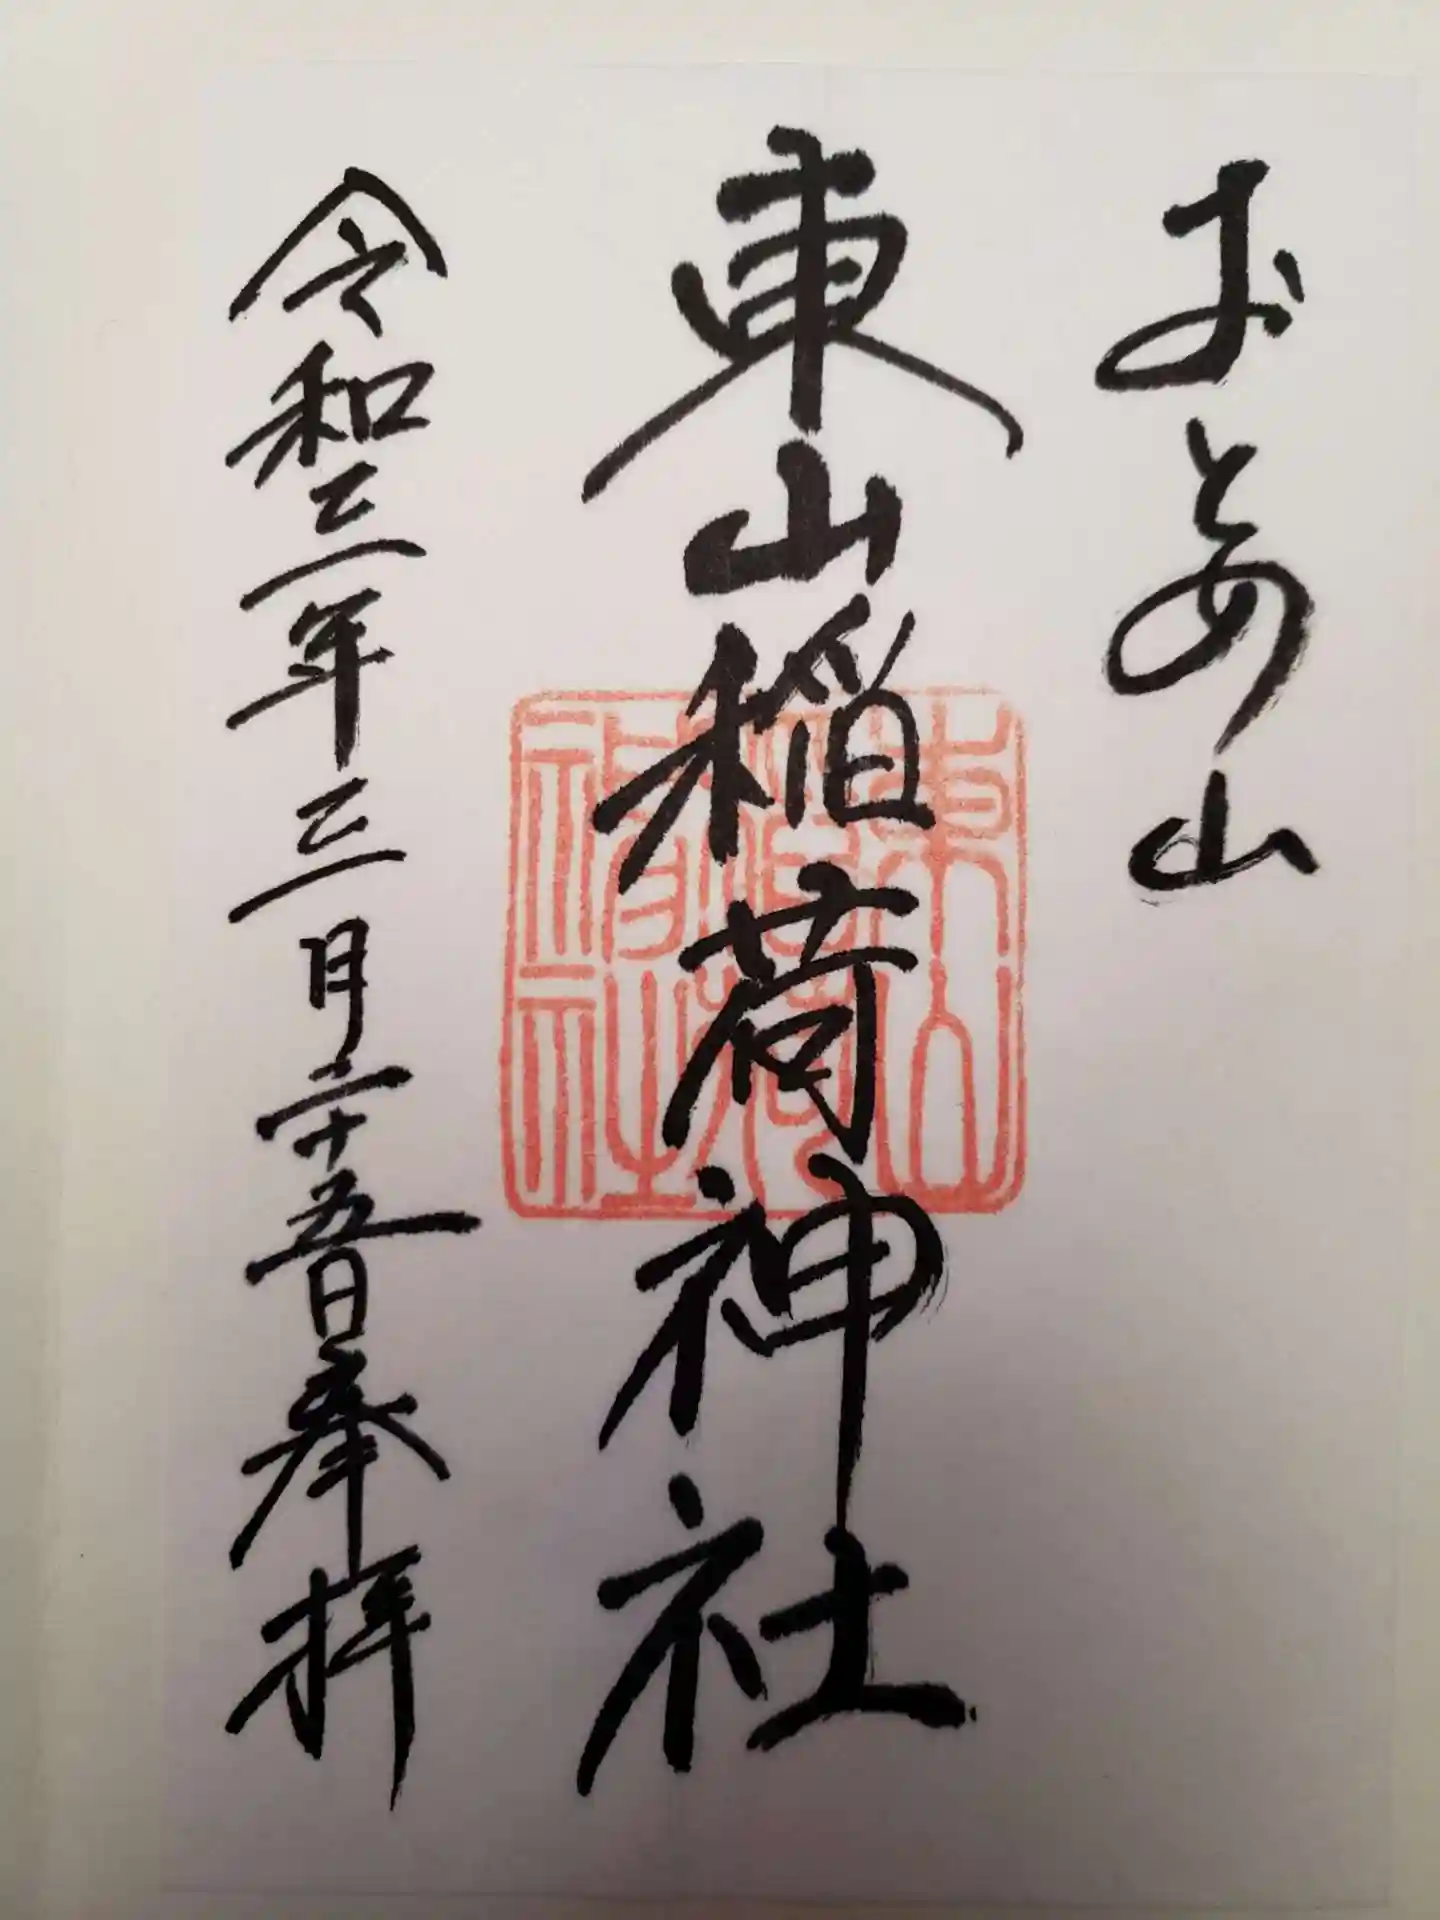 おとめ山
東山稲荷神社
令和三年三月二十五日奉拝
東山
稲荷
神社